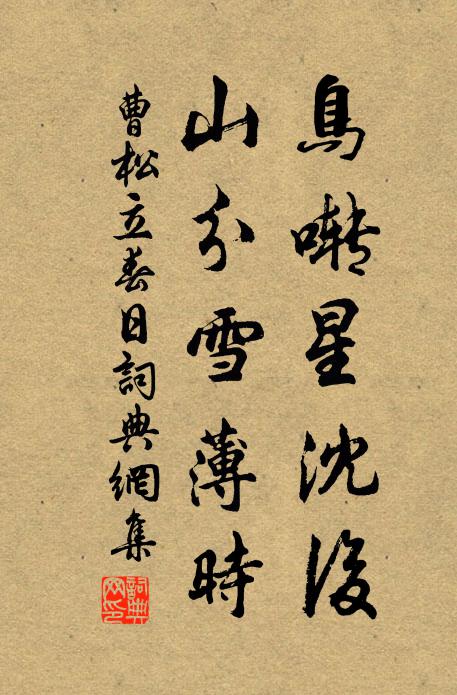 鳥囀星沈後
山分雪薄時
曹松立春日詞典網集
詞典网印